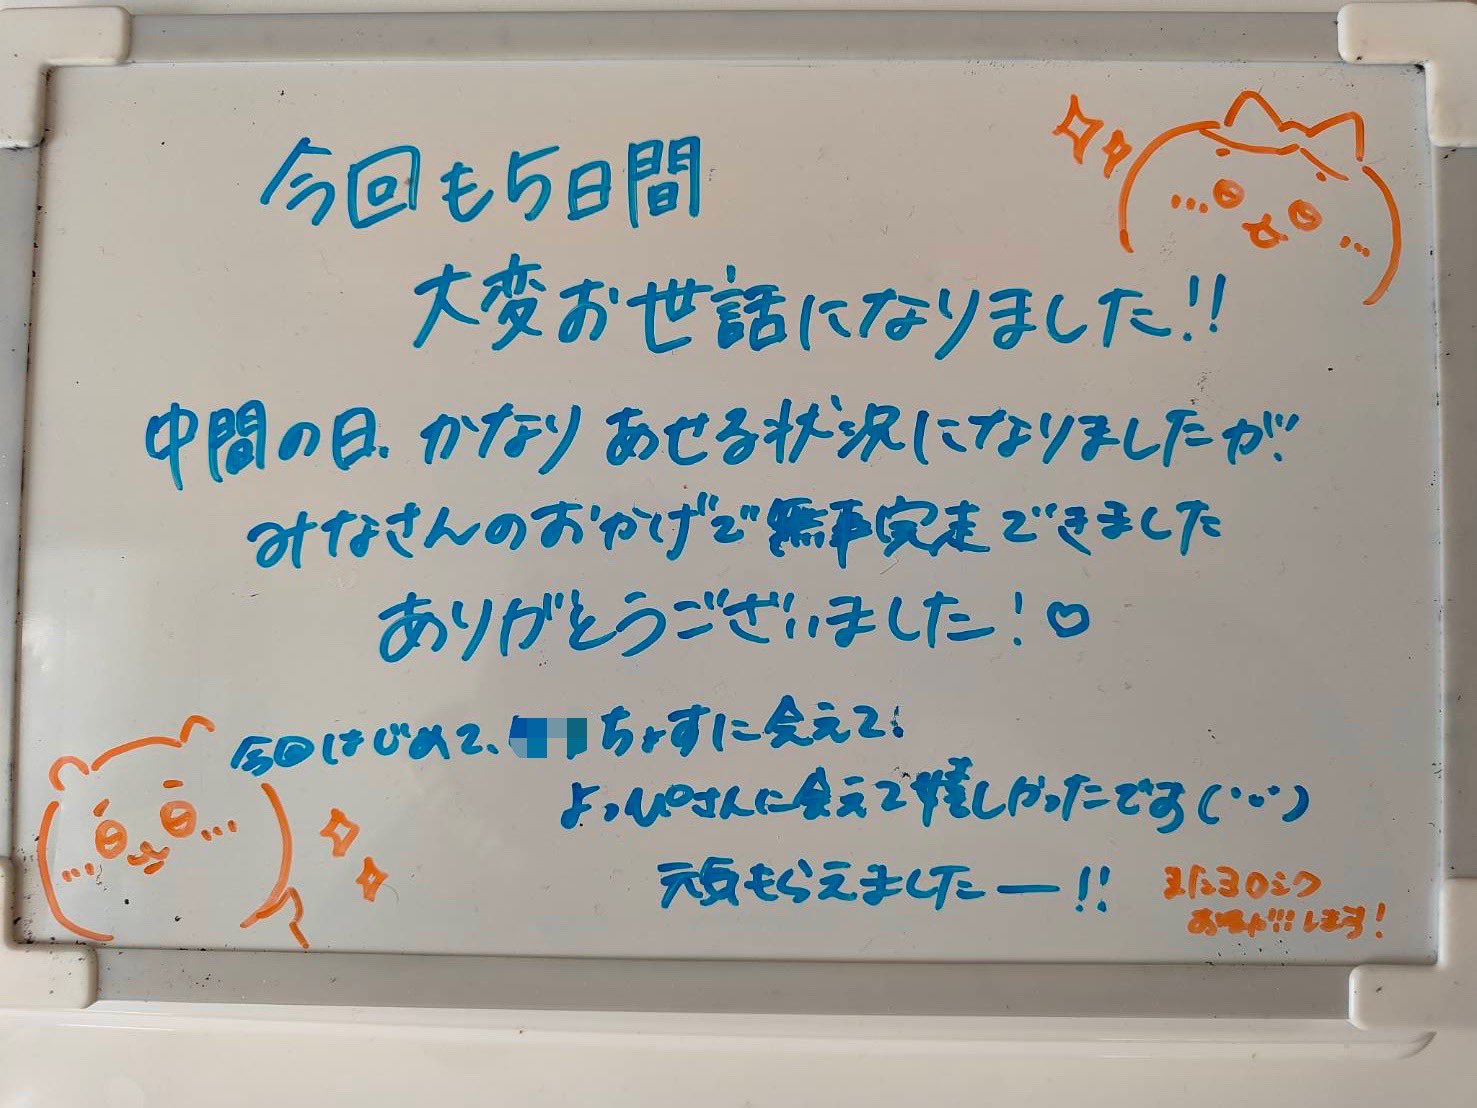 今回も5日間
大変お世話になりました!!
中間の日、かなりあせる状況になりましたが!
みなさんのおかげで無事完走できました
ありがとうございました!♡
今回はじめて、ちょすに会えて!
よっぴさんに会えて嬉しかったです(¨)
元気もらえましたー!!
またヨロシク
おねがいします!